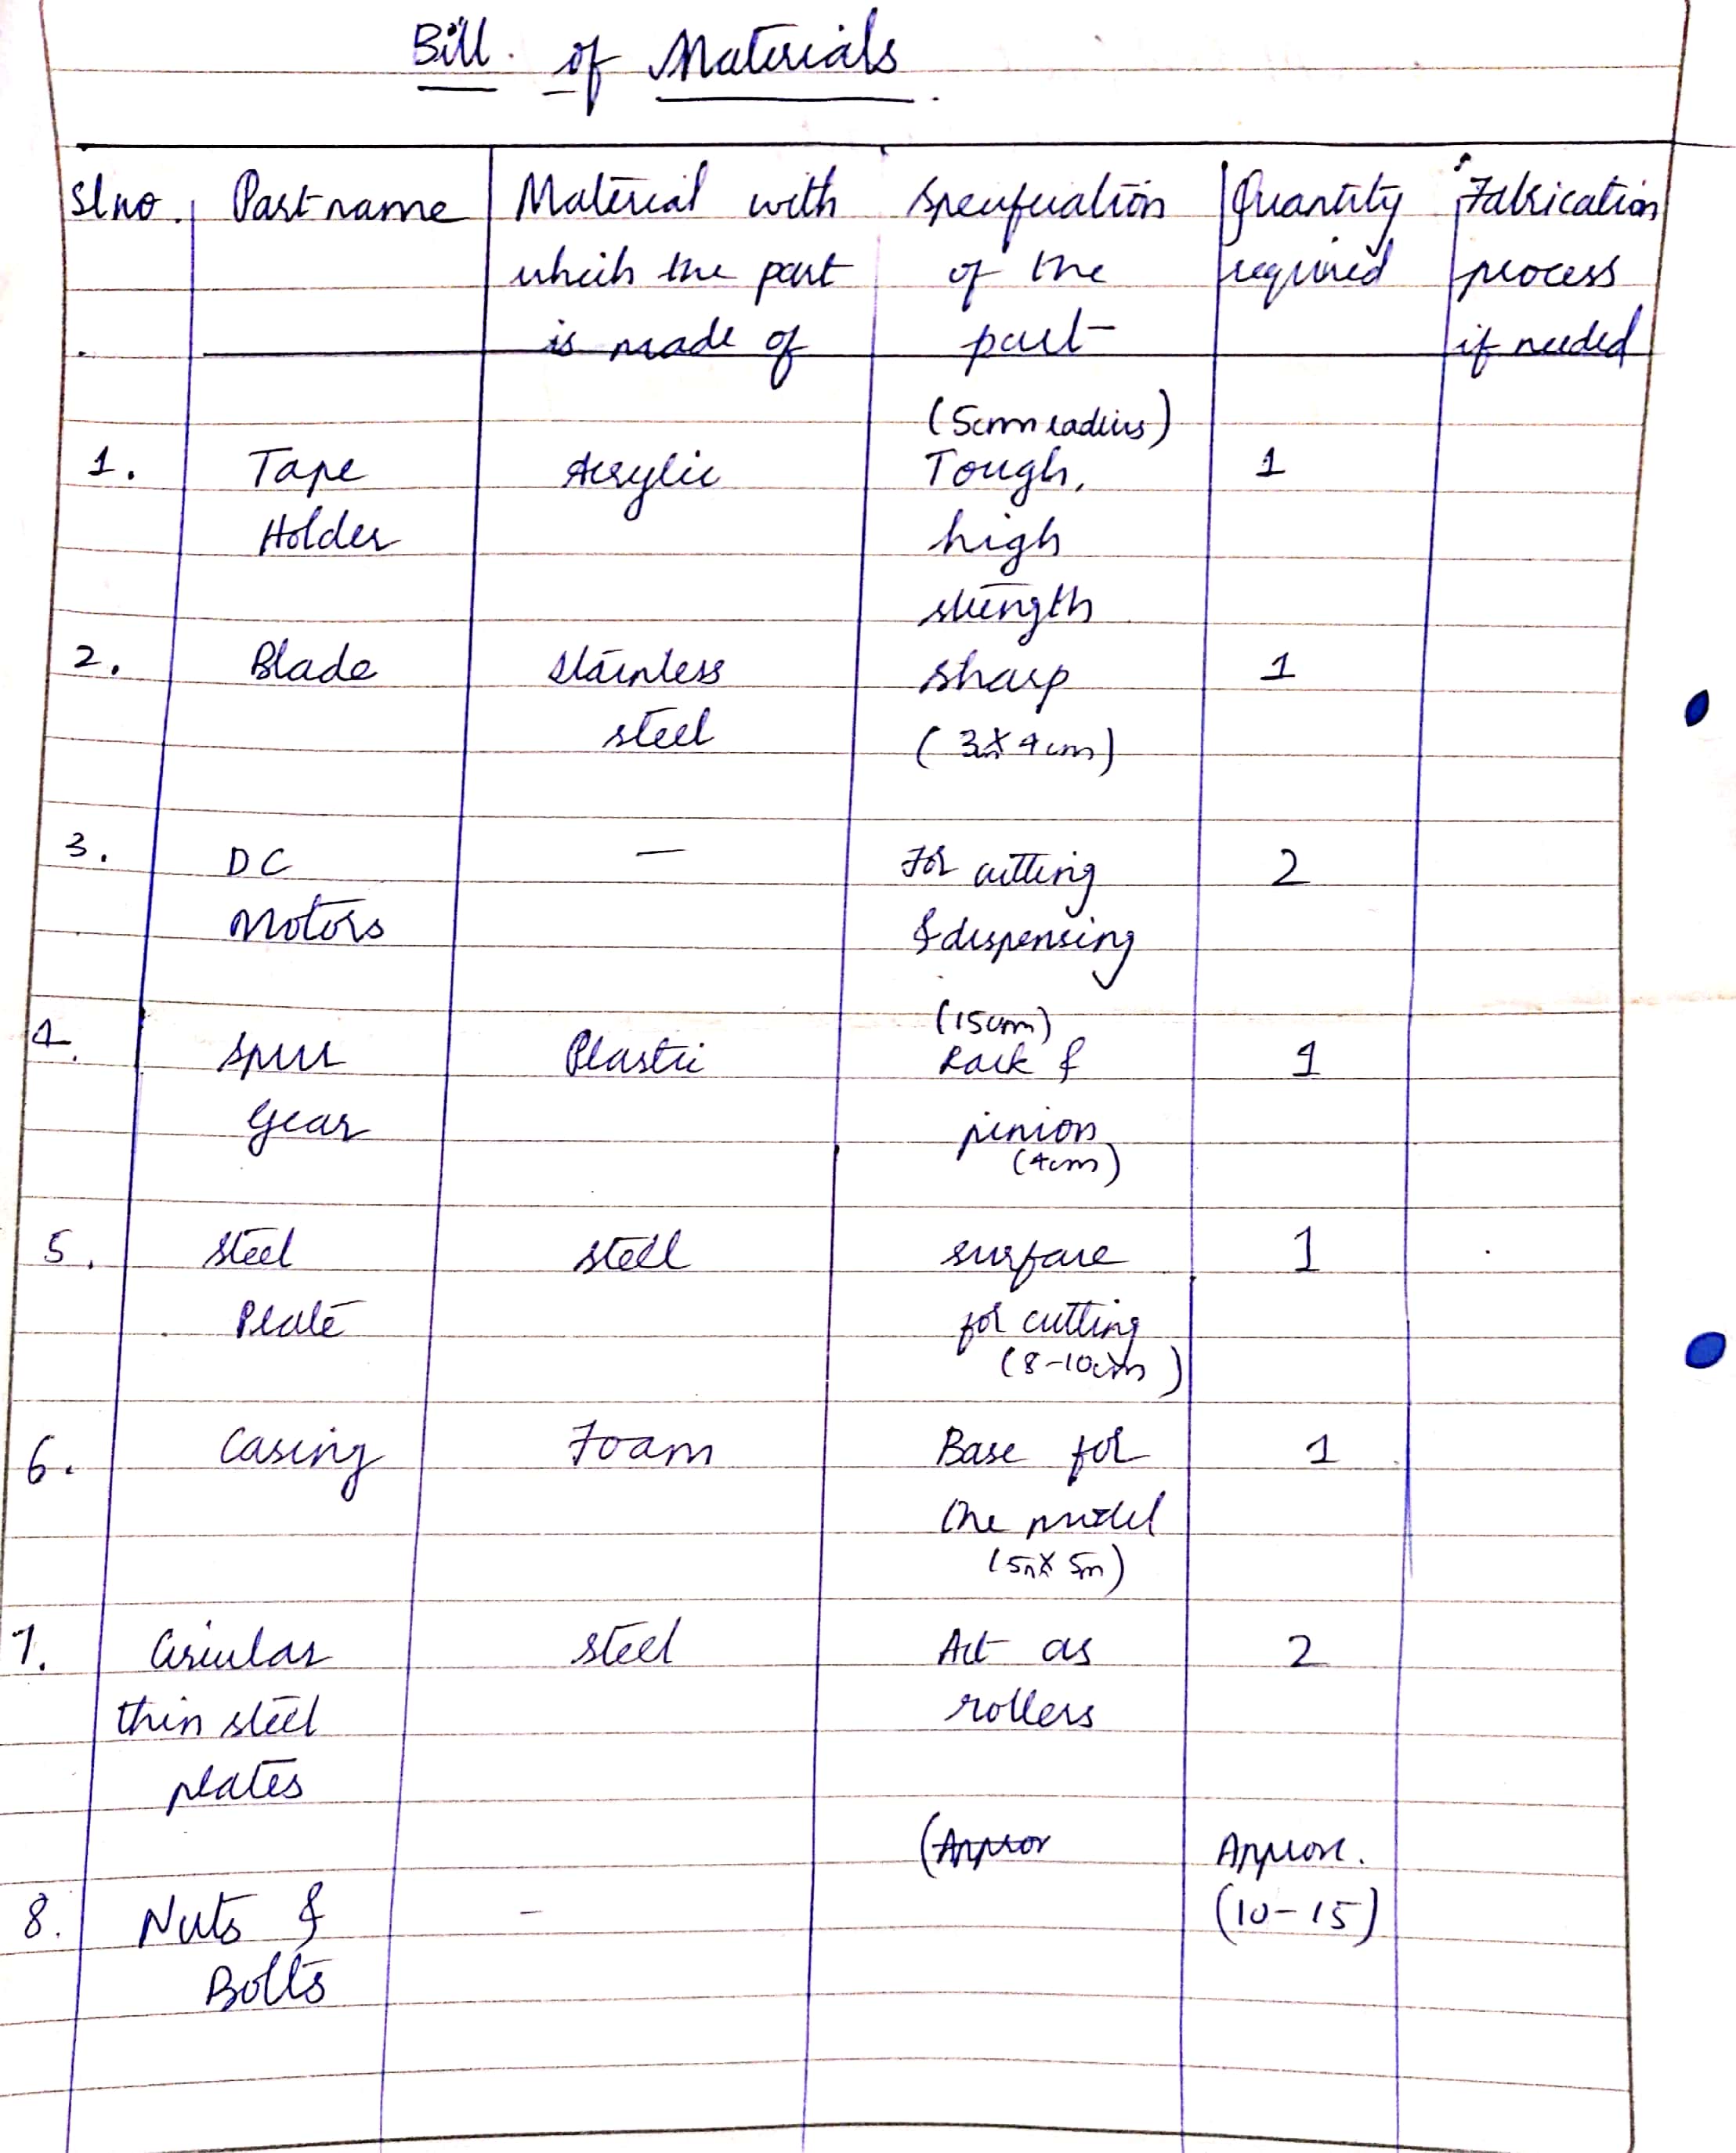 Bill of Materials.
Sl no. Part name Material with which the part is made of Specification of the part Quantity required Fabrication process if needed
1. Tape Holder Acrylic (5cm radius) Tough, high strength 1
2. Blade Stainless steel sharp (3 X 4 cm) 1
3. DC Motors — For cutting & dispensing 2
4. Spur Gear Plastic (15cm) Rack & pinion (4cm) 1
5. Steel Plate steel surface for cutting (8-10cm) 1
6. Casing Foam Base for the model 1
7. Circular thin steel plates steel Act as rollers 2
8. Nuts & Bolts - Approx. (10-15)